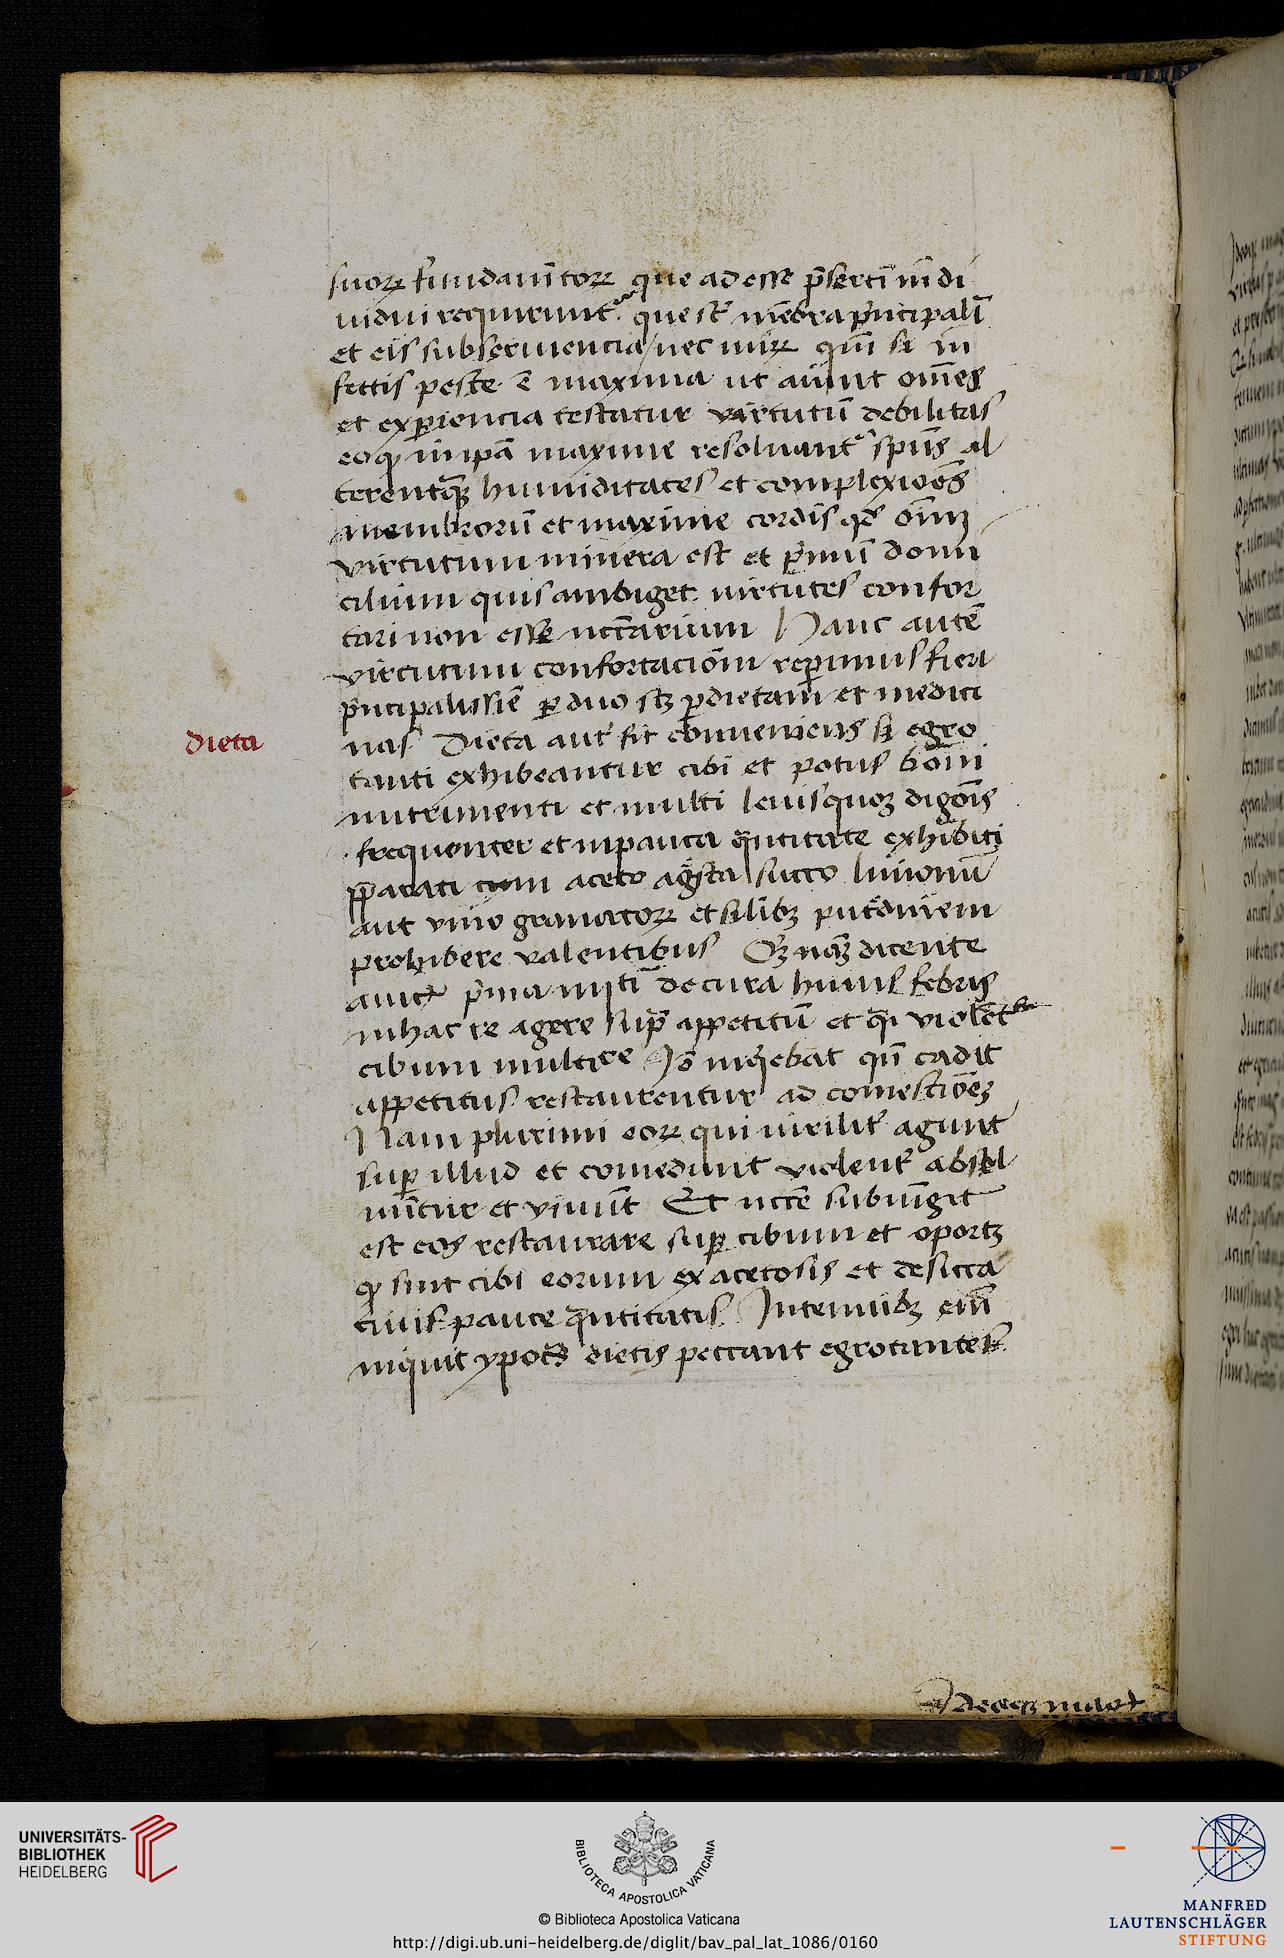 suoꝝ fundamētoꝝ que ad esse p̄sertī indi
uidui requirunt᷑ que st̄ mēbra prīcipalī
et eis subseruiencia / nec mirꝝ qm̄ si in
fettis peste ē maxima ut aiūnt om̄es
et experiencia testatur virtutū debilitas
eo q̄ in ip̄a maxime resoluant᷑ sp̄us al
terentqꝫ humiditates et complexiōes
membrorū et maxime cordis qd̄ oīm
virtutum minera est et p̄mū domi
cilium quis ambiget virtutes confor
tari non esse nēc̄arium Hanc autē
virtutum confortaciōm reperimus fieri
prīcipalissīe ꝑ duo sꝫ ꝑ dietam et medici
nas Dieta aut᷑ fit conueniens si egro
tanti exhibeantur cibi et potus boni
nutrimenti et multi leuisquoꝫ digōis
frequenter et in pauca q̄ntitate exhibiti
p̄parati cum aceto agresta succo limonū
aut vino granatoꝝ et silibꝫ putēdinem
prohibere valentibus Oꝫ nāqꝫ dicente
auicē p̄ma iiijti de cura huius febris
in hac re agere sup̄ appetitū et q̄i violētr̄
cibum multere Iō inquebat qn̄ cadit
appetitus restaurentur ad comestiōeꝫ
Nam plurimi eoꝝ qui virilit᷑ agunt
super illud et comedunt violent᷑ absol
uūtur et viuūt Et nēc̄ē subiūgit
est eos restaurare super cibum et oportꝫ
q̄ sint cibi eorum ex acetosis et desicca
tiuis pauce q̄ntitatis In tenuibꝫ em̄
inquit ypocs̄ dietis peccant egrotantes
dieta
UNIVERSITÄTS-
BIBLIOTHEK
HEIDELBERG
BIBLIOTECA APOSTOLICA VATICANA
© Biblioteca Apostolica Vaticana
http://digi.ub.uni-heidelberg.de/diglit/bav_pal_lat_1086/0160
MANFRED
LAUTENSCHLÄGER
STIFTUNG